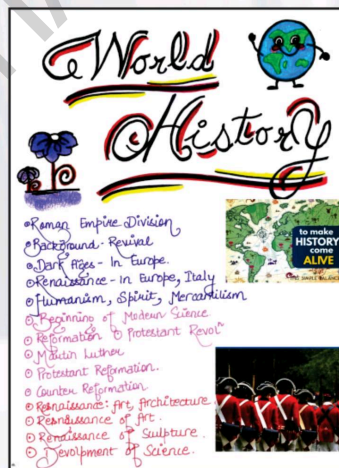 World
History
Roman Empire Division
Background - Revival
Dark Ages - In Europe.
Renaissance - In Europe, Italy
Humanism, Spirit, Mercantilism
Beginning of Modern Science
Reformation & Protestant Revolⁿ
Martin Luther
Protestant Reformation.
Counter Reformation
Renaissance: Art, Architecture
Renaissance of Art.
Renaissance of Sculpture.
Devolpment of Science.
to make
HISTORY
come
ALIVE